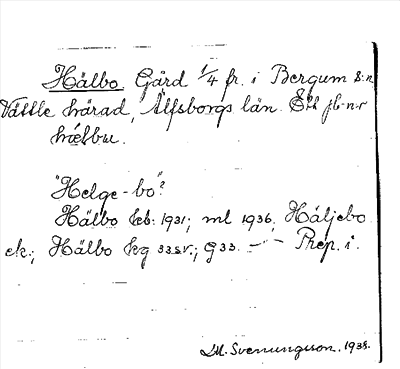 Hälbo Gård 1/4 fr. i Bergum s:n
Vättle härad, Älfsborgs län. Ett jb-n:r
"Helge-bo"?
Hälbo keb. 1931; ml 1936, Häljebo
ek.; Hälbo kg 33 sv.; g 33. – Prep. i.
D.M. Svenungsson. 1938.